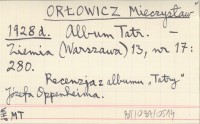 ORŁOWICZ Mieczysław
1928 d. Album Tatr. –
Ziemia (Warszawa) 13, nr 17:
280.
Recenzja z albumu „Tatry"
Józefa Oppenheima.
MT